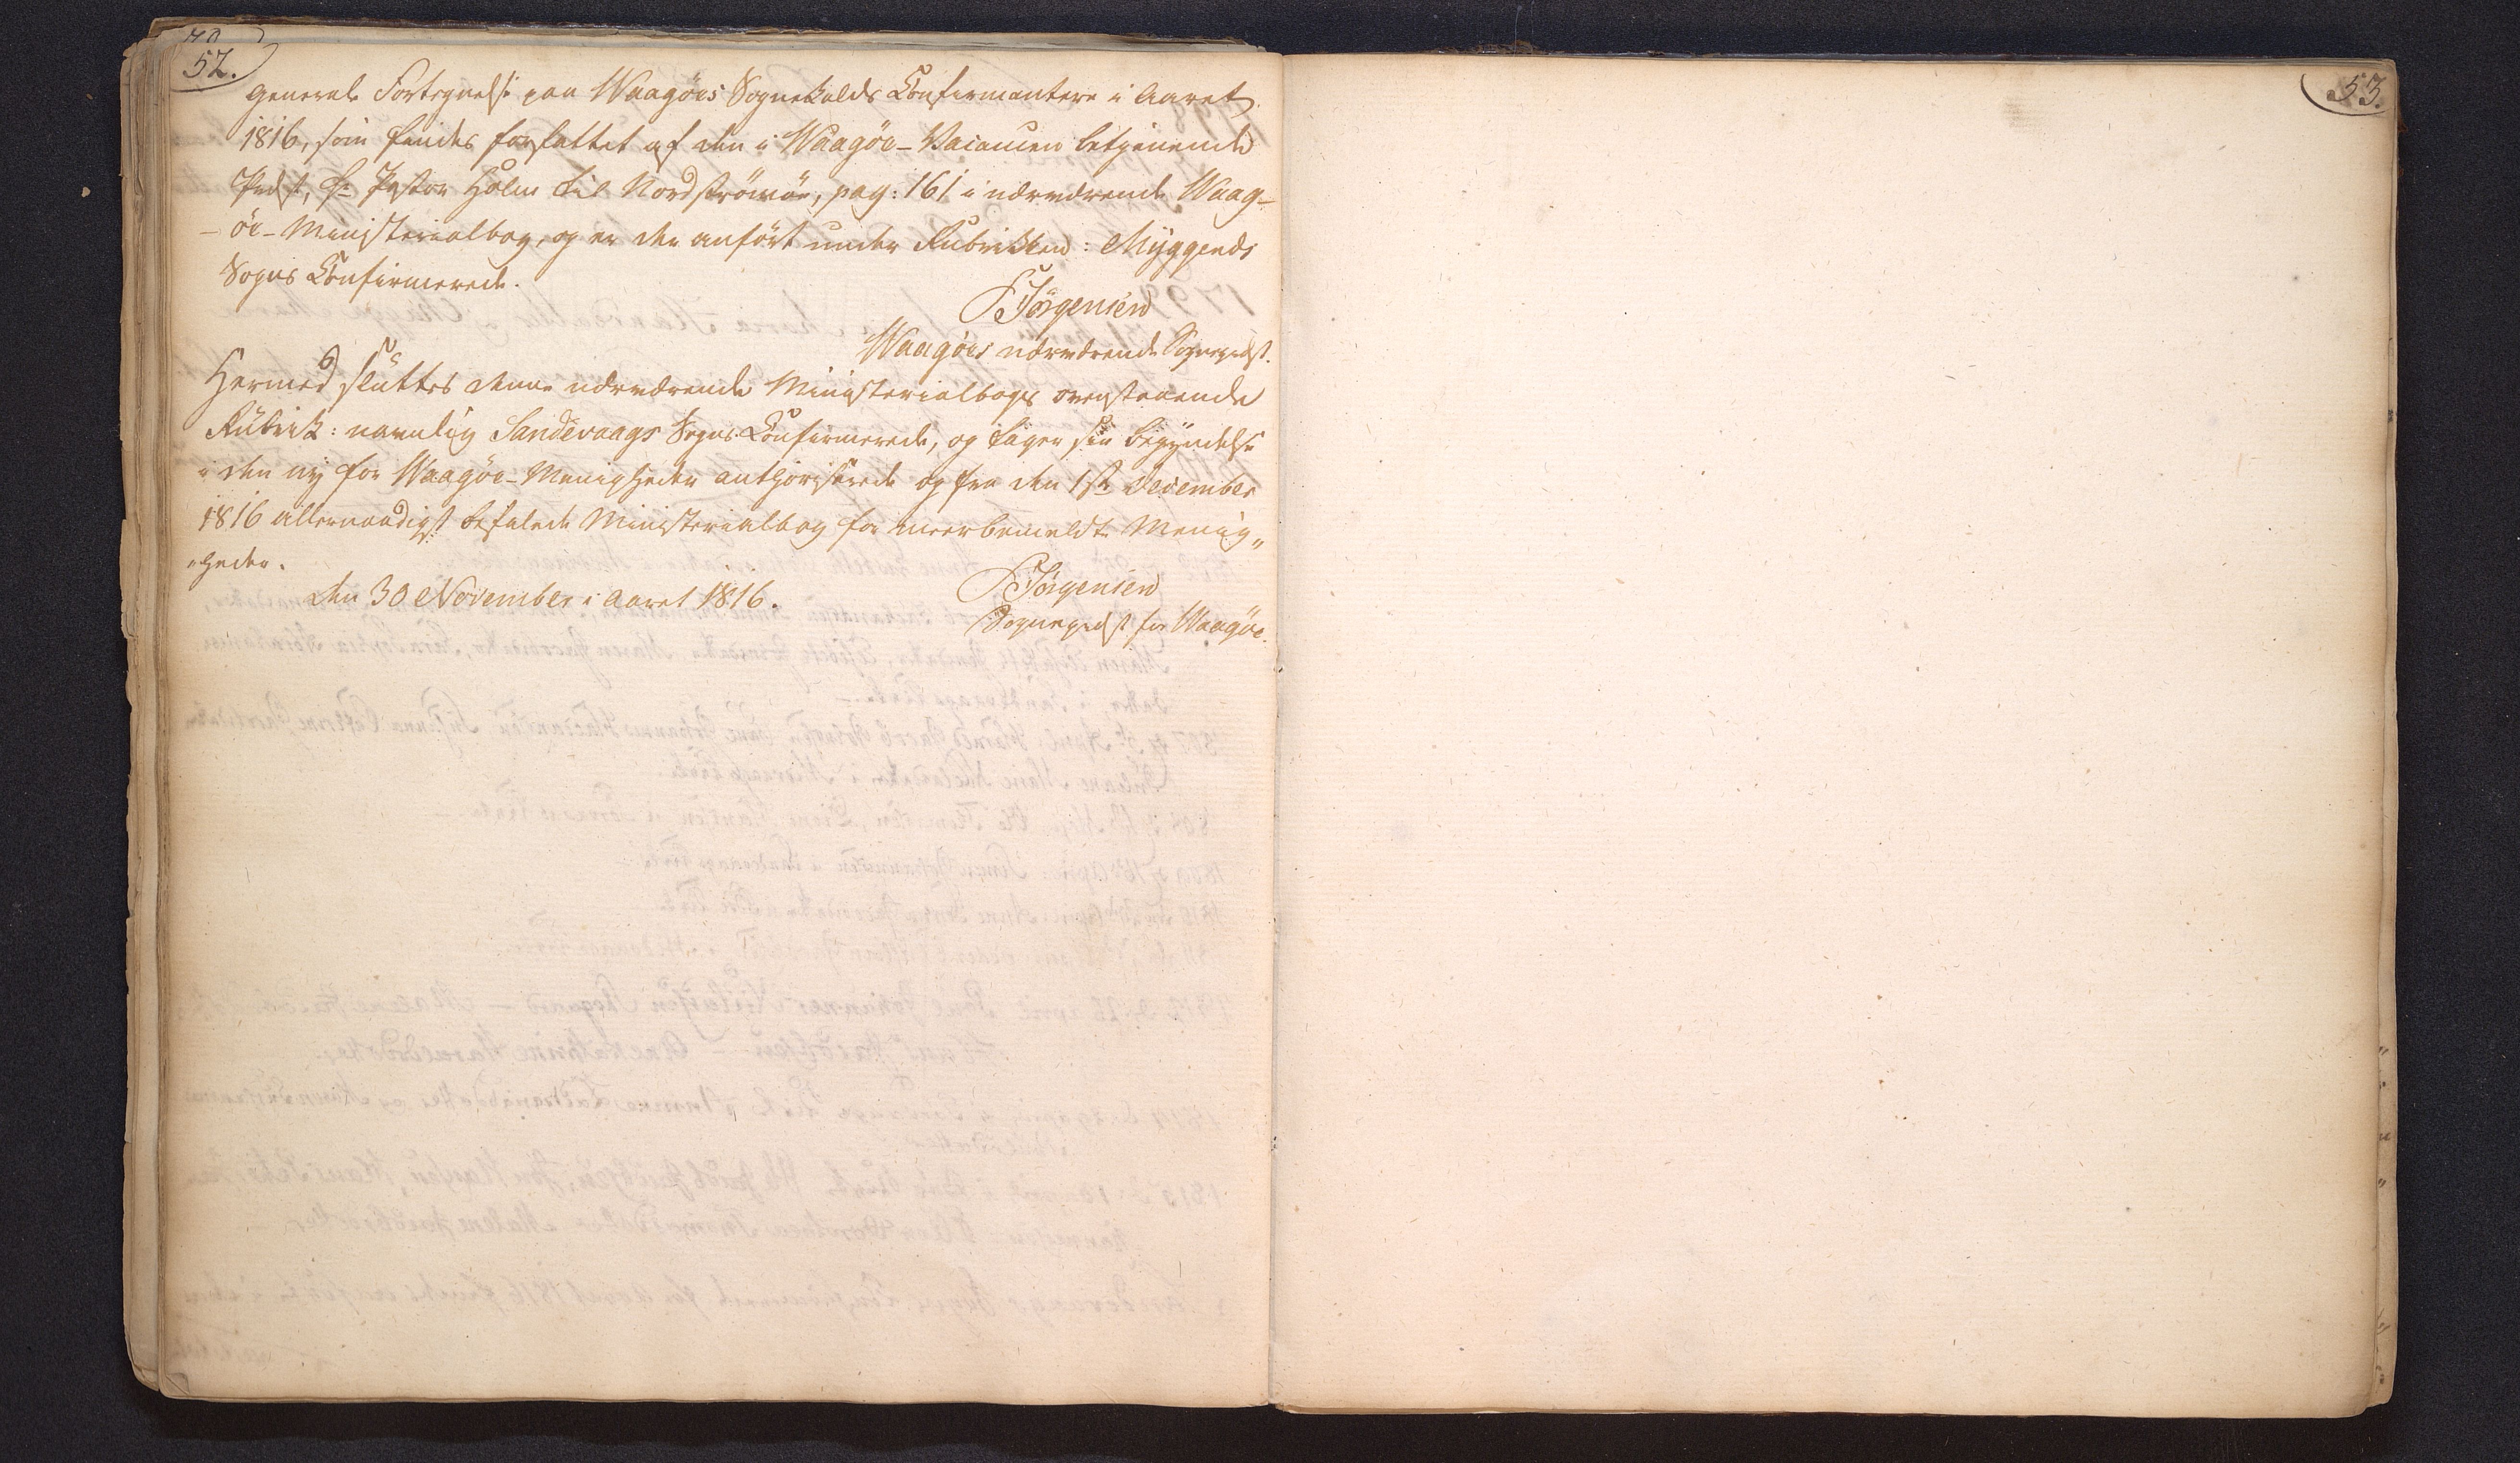 52.
generale Fortegnelse paa Waagöes Sognekalds Confirmantere i Aaret
1816, som findes forfattet af den i Waagöe-Vacancen betjenende
Præst, Hr Pastor Holm til Nordströmöe, pag: 161 i nærværende Waag-
-öe-Ministerialbog, og er der anfört under Rubrikken: Myggenæs
Sogns Confirmerede.
Jörgensen
Waagöes nærværende Sognepræst.
Hermed sluttes denne nærværende Ministerialbogs ovenstaaende
Rubrik: navnlig Sandevaags Sogns Confirmerede, og tager sin Begyndelse
i den ny for Waagöe-Menigheder authoriserede og fra den 1ste December
1816 allernaadigst befalede Ministerialbog for meerbemeldte Menig„
„heder.
Den 30 November i Aaret 1816.
Jörgensen
Sognepræst for Waagöe.
53.